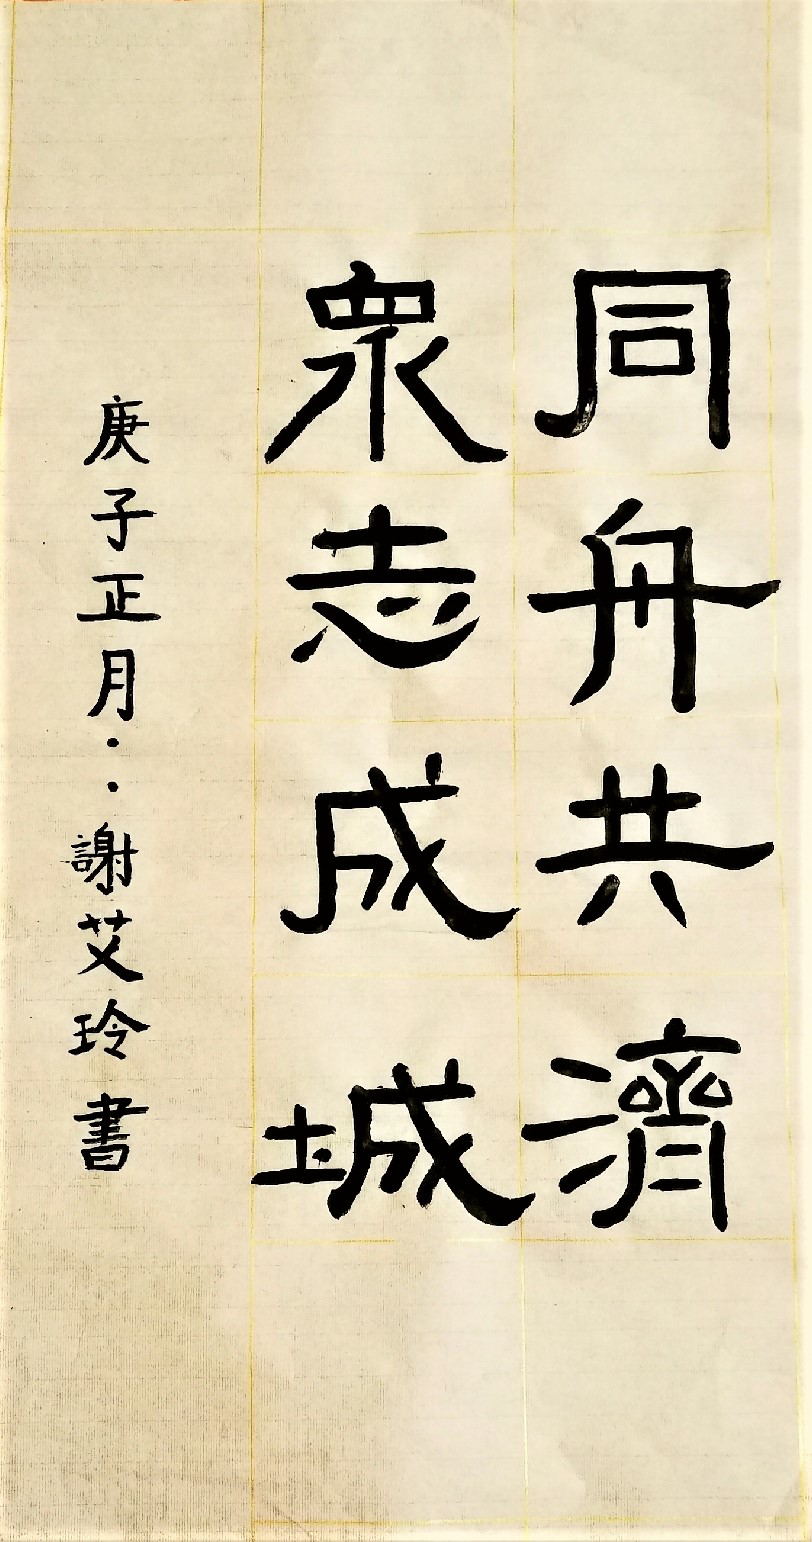 同舟共濟
眾志成城
庚子正月··謝艾玲書